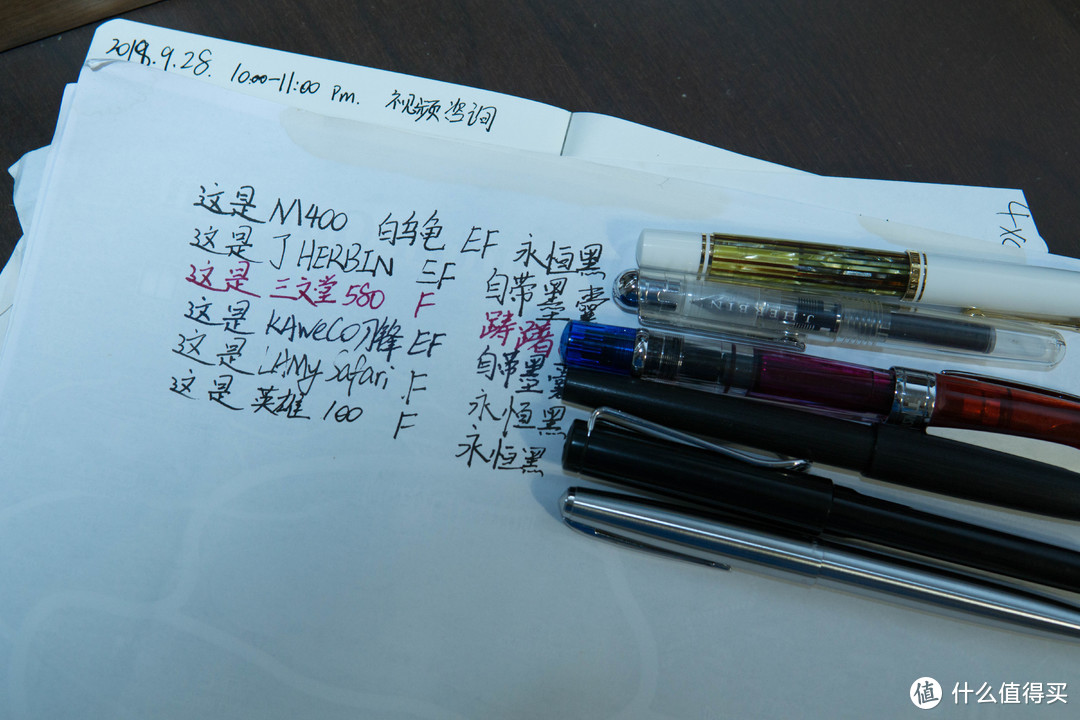 2018.9.28. 10:00-11:00 pm. 视频咨询
这是 M400 白乌龟 EF 永恒黑
这是 J HERBIN EF 自带墨囊
这是 三文堂 580 F 踌躇
这是 KAWECO 刀锋 EF 自带墨囊
这是 LAMY safari F 永恒黑
这是 英雄 100 F 永恒黑
J. HERBIN
值 什么值得买